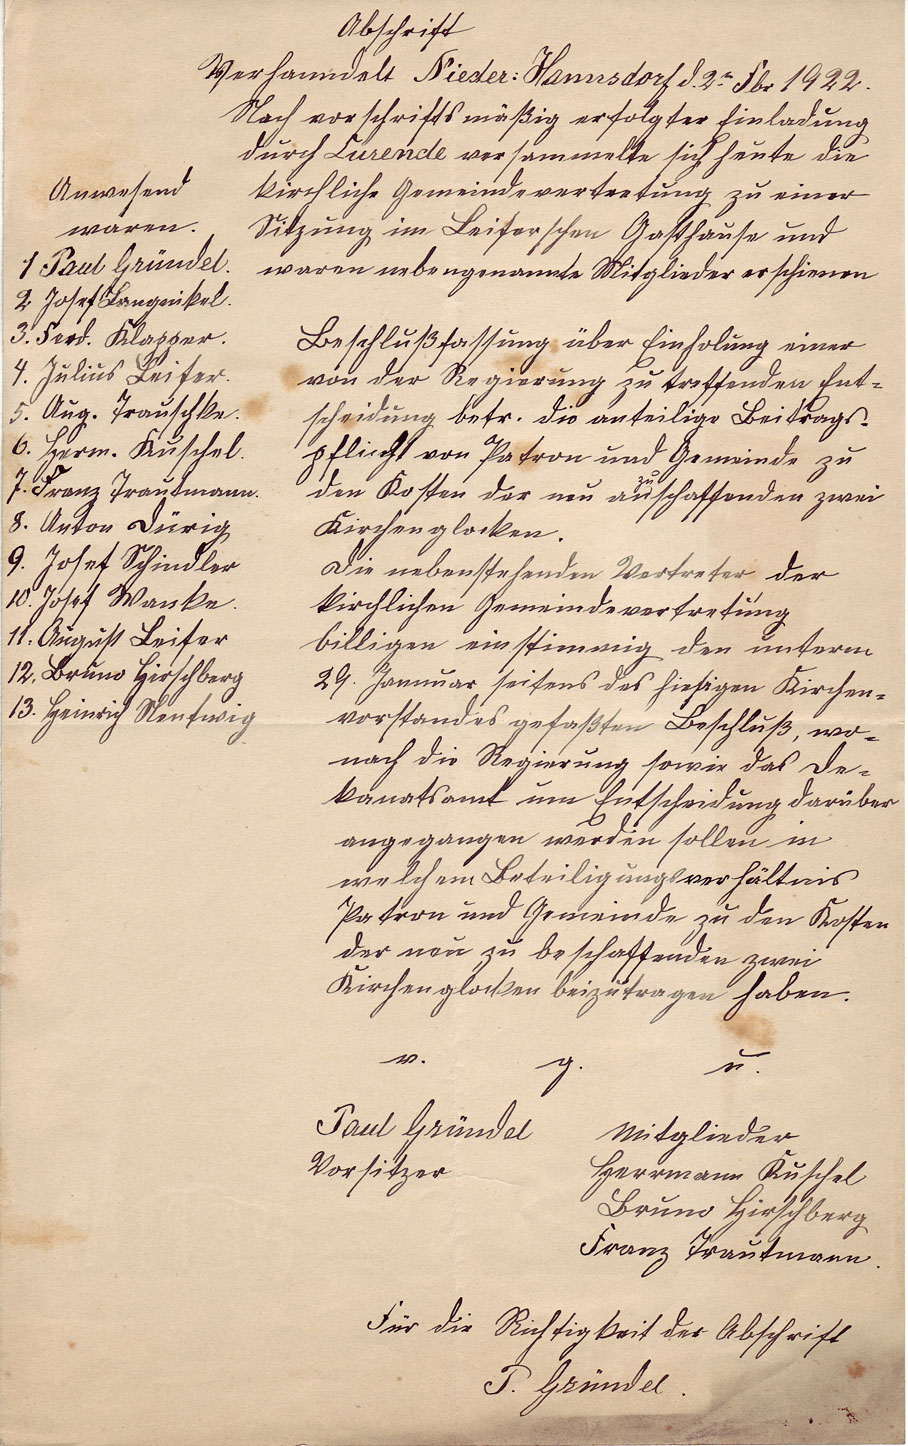 Abschrift
Verhanndelt Nieder: Hannsdorf d. 2ᵗᵉⁿ Fbr 1922.
Nach vorschriftsmäßig erfolgter Einladung
durch Curende versammelte sich heute die
kirchliche Gemeindevertretung zu einer
Sitzung im Leiferschen Gasthause und
waren nebengenannte Mitglieder erschienen
Anwesend
waren.
1 Paul Gründel.
2 Josef Langenkel.
3. Ferd. Klapper.
4. Julius Leifer.
5. Aug. Trauschke.
6. Herm. Kuschel.
7. Franz Trautmann.
8. Anton Dürig
9. Josef Schindler
10. Josef Wanke.
11. August Leifer
12. Bruno Hirschberg
13. Heinrich Nentwig
Beschlußfassung über Einholung einer
von der Regierung zu treffenden Ent-
scheidung betr. die anteilige Beitrags-
pflicht von Patron und Gemeinde zu
den Kosten der neu anzuschaffenden zwei
Kirchenglocken.
Die nebenstehenden Vertreter der
kirchlichen Gemeindevertretung
billigen einstimmig den unterm
29. Jannuar seitens des hiesigen Kirchen-
vorstandes gefaßten Beschluß, wo-
nach die Regierung sowie das De-
kanatsamt um Entscheidung darüber
angegangen werden sollen in
welchem Beteiligungsverhältnis
Patron und Gemeinde zu den Kosten
der neu zu beschaffenden zwei
Kirchenglocken beizutragen haben.
v. g. u.
Paul Gründel
Vorsitzer
Mitglieder
Herrmann Kuschel
Bruno Hirschberg
Franz Trautmann.
Für die Richtigkeit der Abschrift
P. Gründel.